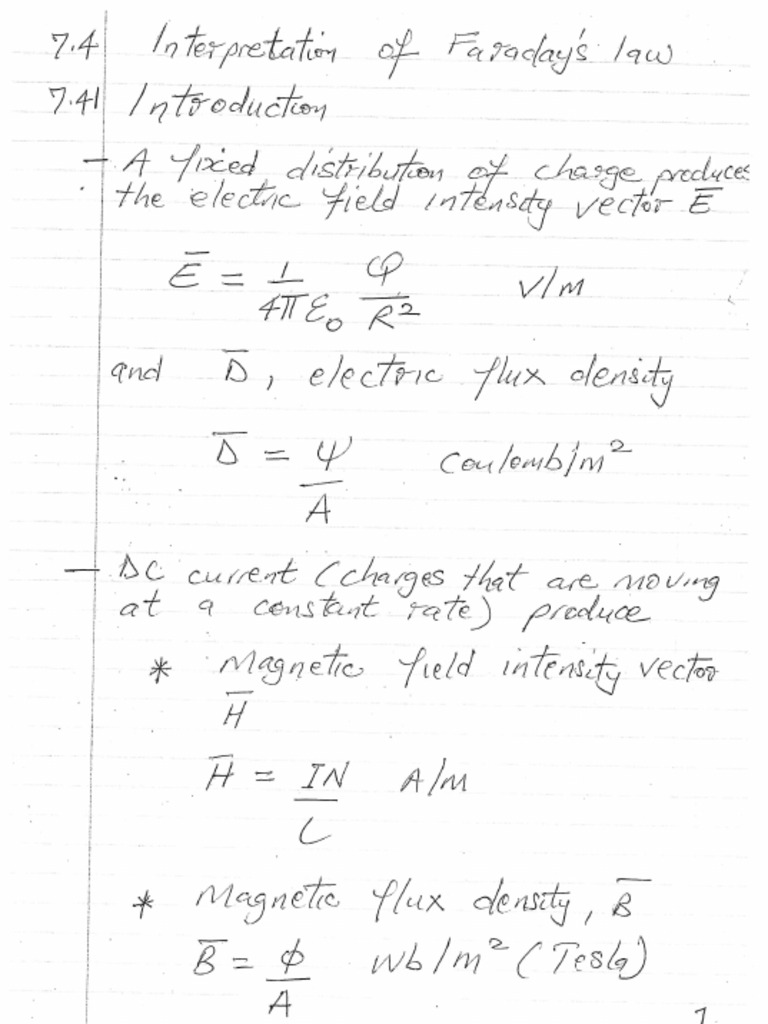 7.4 Interpretation of Faraday's law
7.41 Introduction
- A fixed distribution of charge produces
the electric field intensity vector E̅
E̅ = 1/(4πε₀) Q/R² V/m
and D̅, electric flux density
D̅ = Ψ/A Coulomb/m²
- DC current (charges that are moving
at a constant rate) produce
* Magnetic field intensity vector
H̅
H̅ = IN/L A/m
* Magnetic flux density, B̅
B̅ = ϕ/A Wb/m² (Tesla)
1